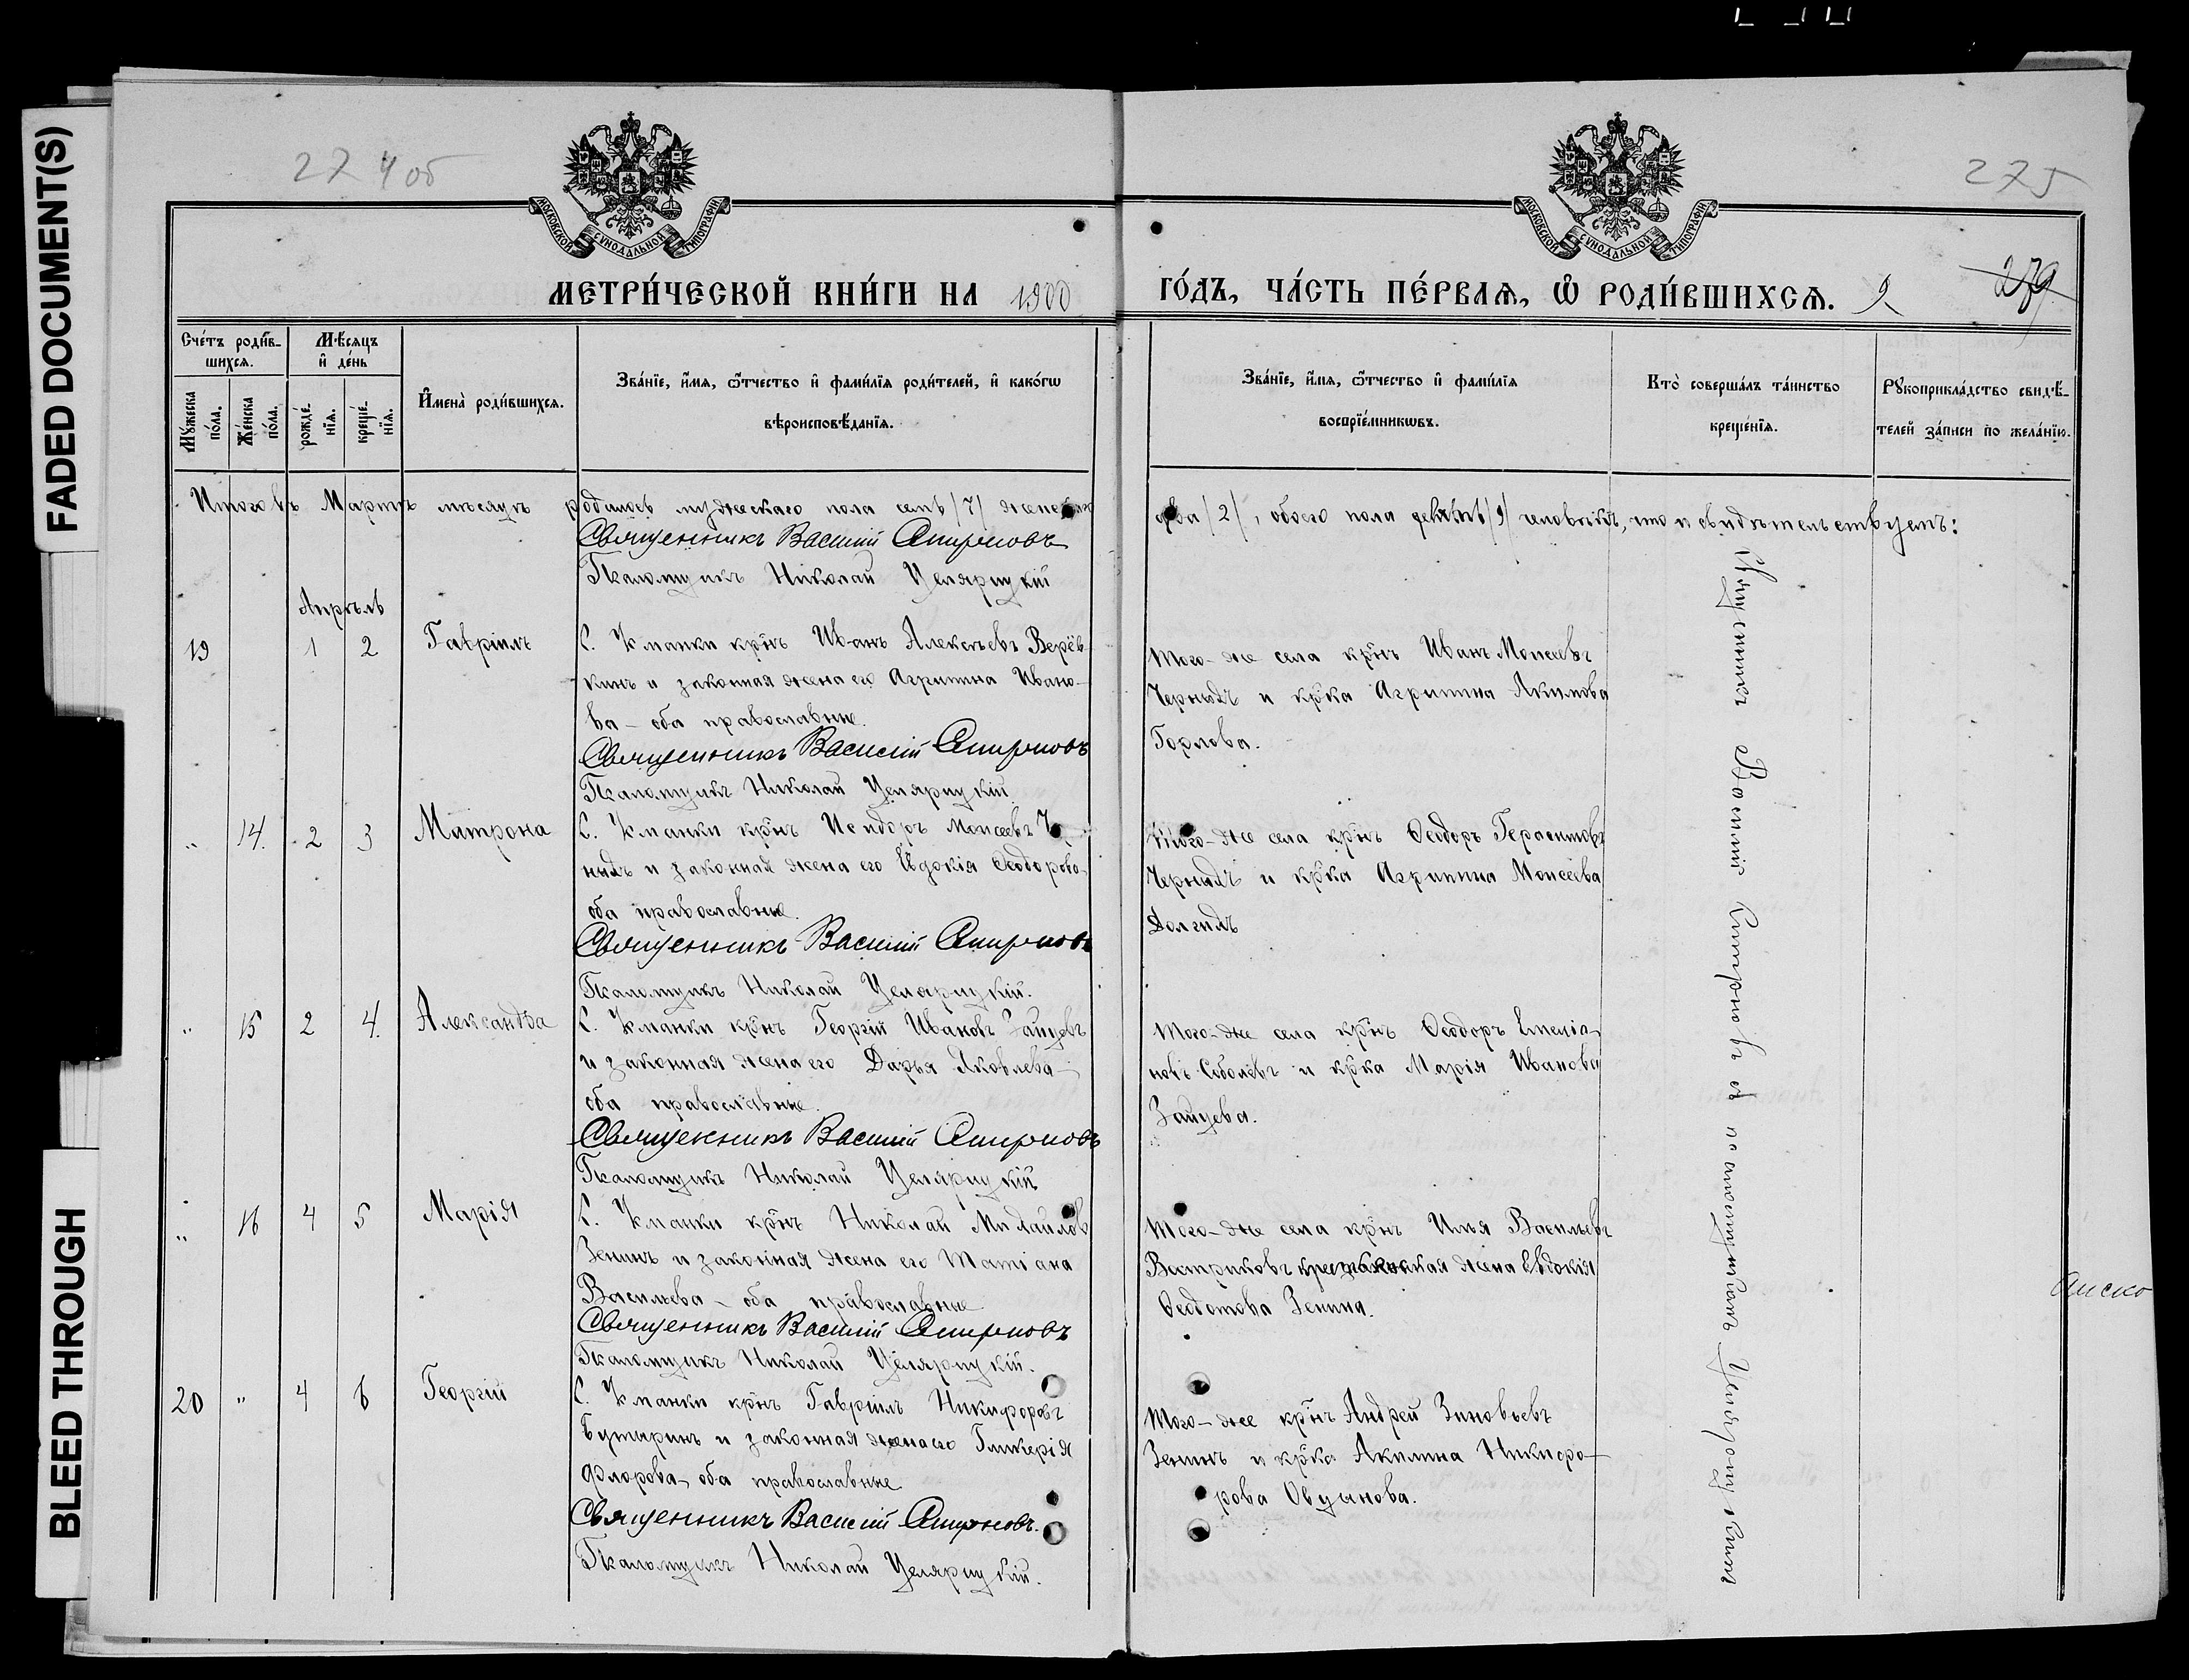 FADED DOCUMENT(S)
BLEED THROUGH
274 об
275
279
МОСКОВСКОЙ СѴНОДАЛЬНОЙ ТИПОГРАФІИ
МОСКОВСКОЙ СѴНОДАЛЬНОЙ ТИПОГРАФІИ
МЕТРИ́ЧЕСКОЙ КНИ́ГИ НА 1900
ГО́ДЪ, ЧА́СТЬ ПЕ́РВАѦ, Ѡ҆ РОДИ́ВШИХСѦ. 9
Сче́тъ роди́в-
шихсѧ.
Мѣ́сѧцъ
и҆ де́нь
Мꙋ́жеска
по́ла.
Же́нска
по́ла.
рожде́-
нїѧ.
креще́-
нїѧ.
И҆мена̀ роди́вшихсѧ.
Зва́нїе, и҆́мѧ, ѻ҆́тчество и҆ фами́лїѧ роди́телей, и҆ како́гѡ
вѣроисповѣ́данїѧ.
Зва́нїе, и҆́мѧ, ѻ҆́тчество и҆ фами́лїѧ
воспрїе́мникѡвъ.
Кто̀ соверша́лъ та́инство
креще́нїѧ.
Рꙋкоприкла́дство свидѣ́-
телей за́писи по жела́нїю.
Итого въ Мартъ мѣсяцъ родилось мужескаго пола семь /7/ женскаго
два /2/, обоего пола девять /9/ человѣкъ, что и свидѣтельствуемъ:
Священникъ Василій Смирновъ
Псаломщикъ Николай Целярицкій
Апрѣль
19 1 2 Гавріилъ
С. Уманки кр̃нъ Иванъ Алексѣевъ Верёв-
кинъ и законная жена его Агрипина Ивано-
ва – оба православные.
Священникъ Василій Смирновъ
Псаломщикъ Николай Целярицкій
Того-же села кр̃нъ Иванъ Моисеевъ
Черныхъ и кр̃ка Агрипина Якимова
Горлова.
" 14. 2 3 Матрона
С. Уманки кр̃нъ Исидоръ Моисеевъ Чер-
ныхъ и законная жена его Евдокія Ѳеодорова-
оба православные.
Священникъ Василій Смирновъ
Псаломщикъ Николай Целярицкій.
Того-же села кр̃нъ Ѳеодоръ Герасимовъ
Черныхъ и кр̃ка Агрипина Моисеева
Долгихъ
" 15 2 4. Александра
С. Уманки кр̃нъ Георгій Ивановъ Зайцевъ
и законная жена его Дарья Яковлева-
оба православные.
Священникъ Василій Смирновъ
Псаломщикъ Николай Целярицкій
Того-же села кр̃нъ Ѳеодоръ Емелія-
новъ Соболевъ и кр̃ка Марія Иванова
Зайцева.
" 16 4 5 Марія
С. Уманки кр̃нъ Николай Михаиловъ
Зенинъ и законная жена его Татіана
Васильева – оба православные
Священникъ Василій Смирновъ
Псаломщикъ Николай Целярицкій.
Того-же села кр̃нъ Илья Васильевъ
Востриковъ жена Евдокія
Ѳедотова Зенина.
20 " 4 6 Георгій
С. Уманки кр̃нъ Гавріилъ Никифоровъ
и законная жена его Гликерія
Флорова – оба православные
Священникъ Василій Смирновъ.
Псаломщикъ Николай Целярицкій.
Того-же кр̃нъ Андрей Зиновьевъ
Зенинъ и кр̃ка Акилина Никифо-
рова
Священникъ Василій Смирновъ съ псаломщикомъ Целярицкимъ